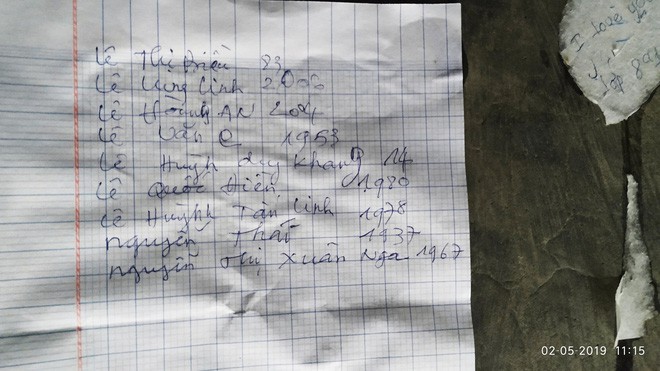 Lê Thị Điều 83
Lê Vũng Linh 2000
Lê Hoàng AN 2004
Lê Văn C 1953
Lê Huỳnh duy Khang 14
Lê Quốc Hiền 1980
Lê Huỳnh Tấn Linh 1978
Nguyễn Thất 1937
Nguyễn Thị Xuân Nga 1967
I
02-05-2019 11:15